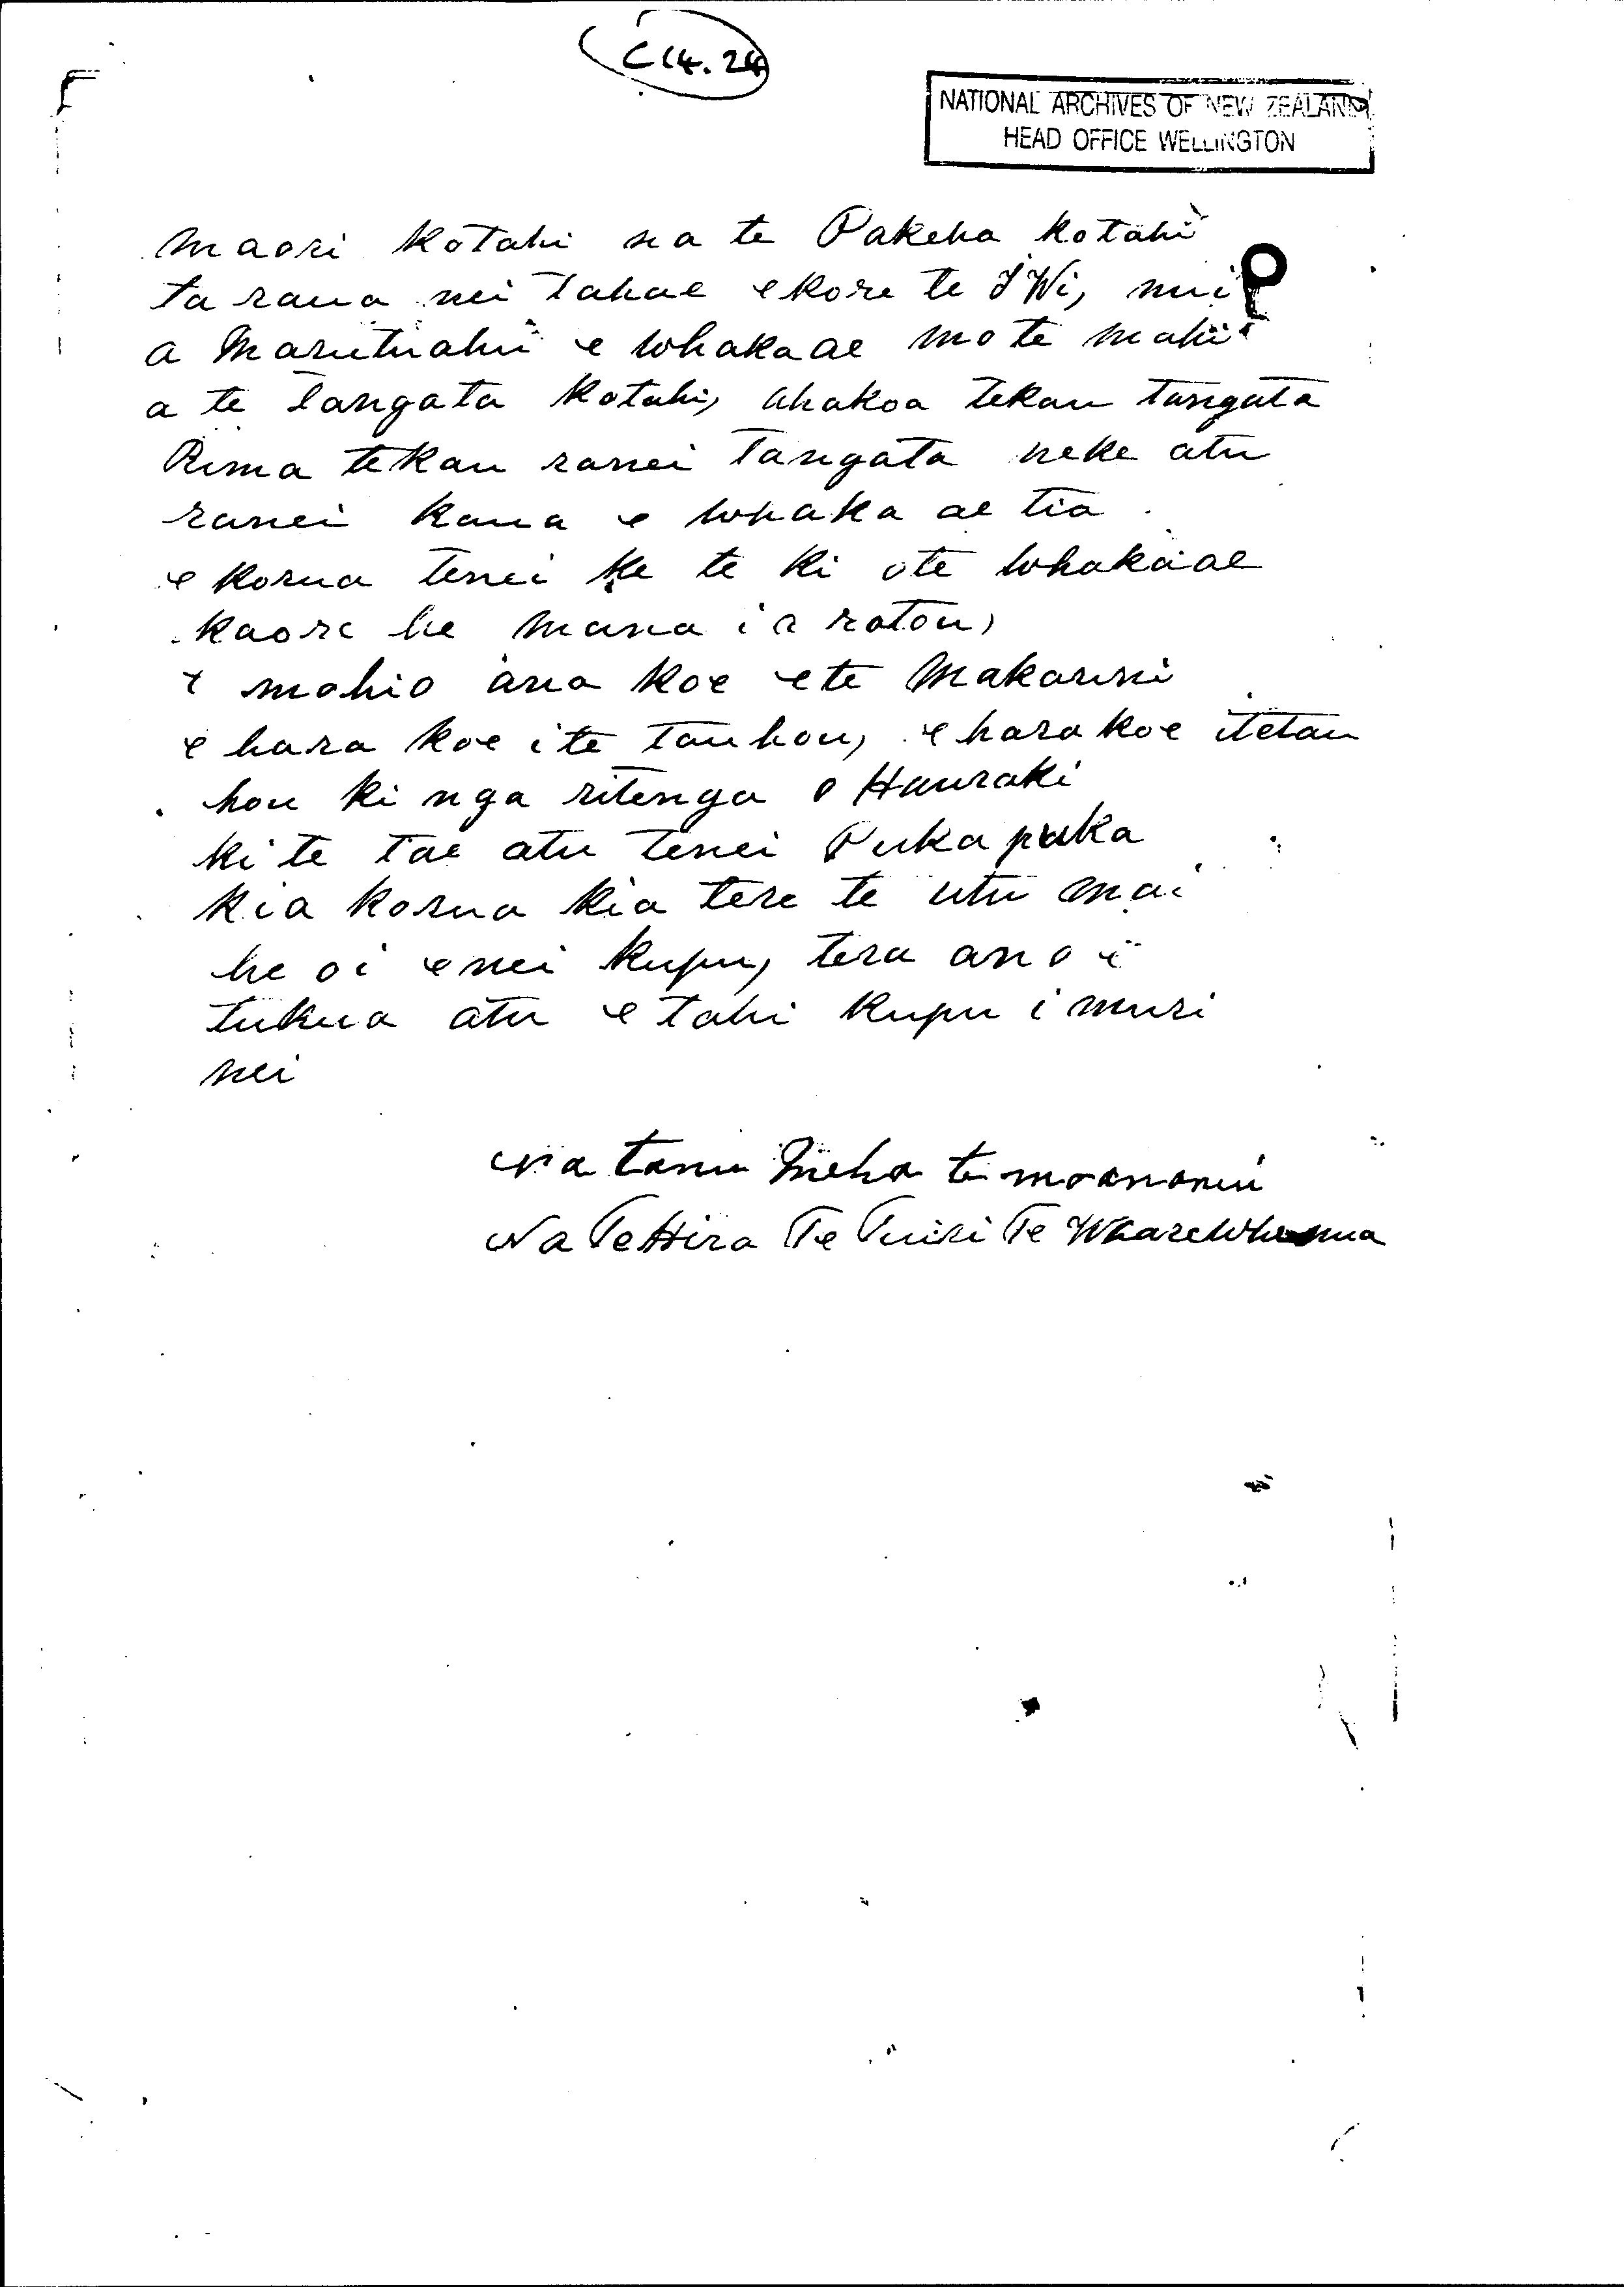 C14.24
NATIONAL ARCHIVES OF NEW ZEALAND
HEAD OFFICE WELLINGTON
maori kotahi na te Pakeha kotahi
ta raua nei tahae ekore te IWi, nui
a Marutuahu e whakaae mo te mahi
a te tangata kotahi, ahakoa tekau tangata
Rima tekau ranei tangata neke atu
ranei kaua e whaka ae tia
e korua tenei ke te ki ote whakaae
kaore he mana i a ratou,
e mohio ana koe ete Makarini
e hara koe i te tauhou, e hara koe itetau
hou ki nga ritenga o Hauraki
ki te tae atu tenei Puka puka
kia korua kia tere te utu mai
he oi enei kupu, tera ano e
tukua atu e tahi kupu i muri
nei
Na tanu Meha te moananui
Na Te Hira Te Tuiri Te Wharewhenua